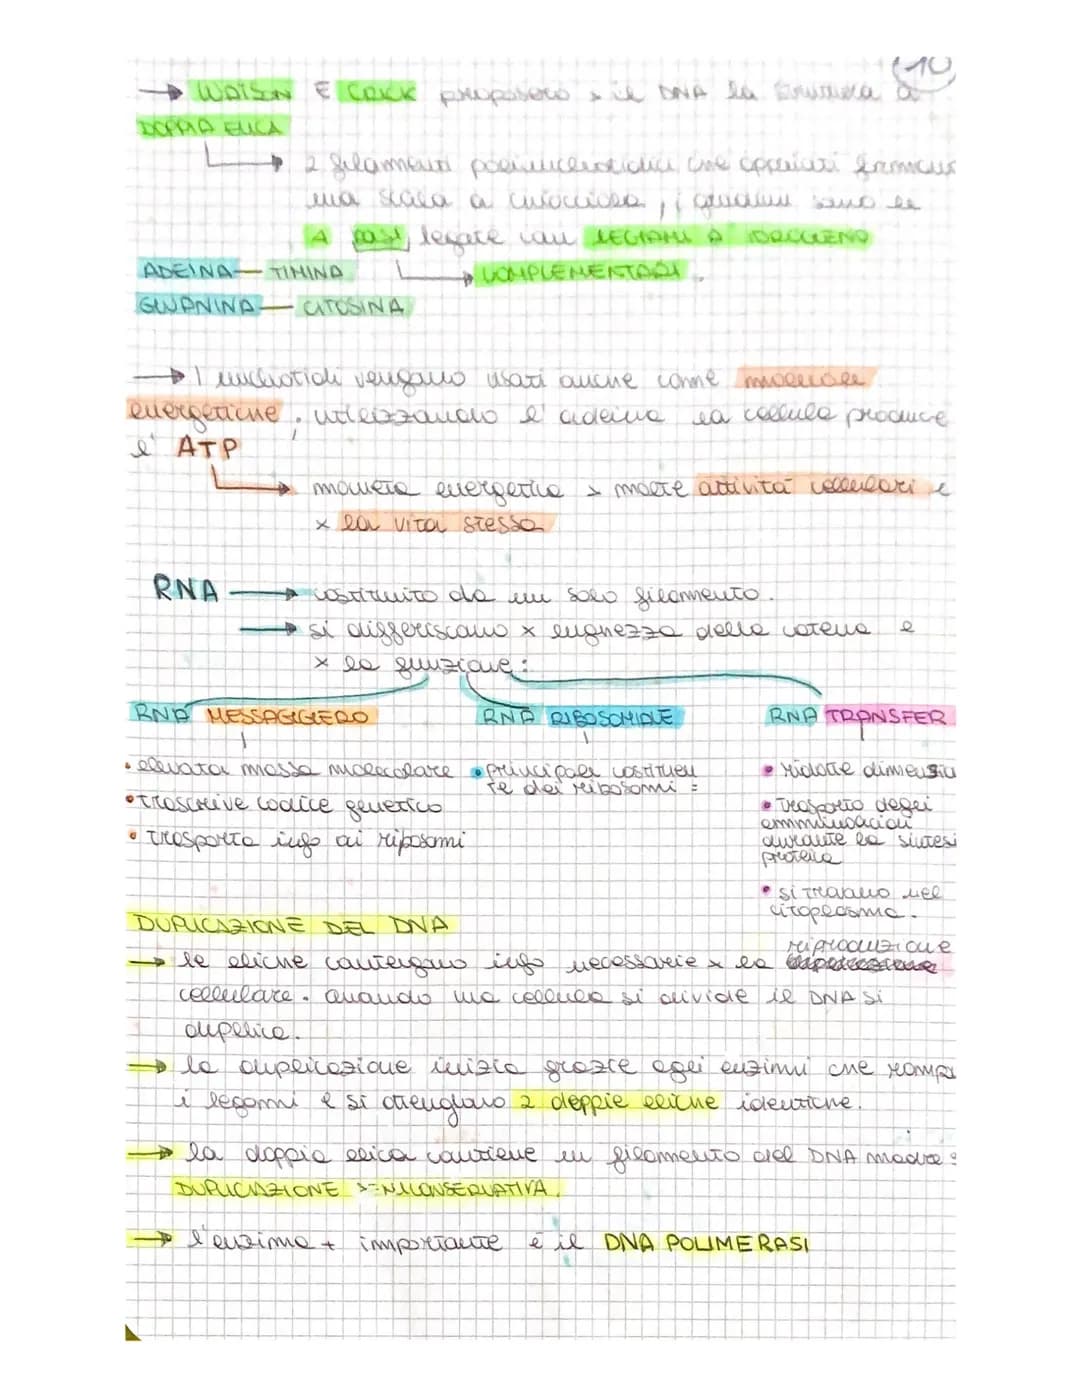 (10)
→ WATSON E CRICK proposero x il DNA la struttura a
DOPPIA ELICA
→ 2 filamenti polinucleotidici che appaiati formano
una scala a chiocciola, i gradini sono le
4 basi legate con LEGAMI A IDROGENO
ADEINA — TIMINA → COMPLEMENTARI.
GUANINA — CITOSINA
→ I nucleotidi vengono usati anche come molecole
energetiche, utilizzando l'adeina la cellula produce
l'ATP
→ moneta energetica x molte attività cellulari e
x la vita stessa
RNA → costituito da un solo filamento.
→ si differiscono x lughezza della catena e
x la funzione:
RNA MESSAGGIERO RNA RIBOSOMIALE RNA TRANSFER
• elevata massa molecolare
• trascrive codice genetico
• trasporta info ai ribosomi
• principali costituen
te dei ribosomi
• ridotte dimensio
• Trasporto degli
amminoacidi
durante la sintesi
proteica
• si trovano nel
citoplasma.
DUPLICAZIONE DEL DNA
riproduzione
→ le eliche contengono info necessarie x la
cellulare. Quando una cellula si divide il DNA si
duplica.
→ la duplicazione inizia grazie agli enzimi che rompo
i legami e si ottengono 2 doppie eliche identiche.
→ la doppia elica contiene un filamento del DNA madre:
DUPLICAZIONE SEMICONSERVATIVA.
→ l'enzima + importante è il DNA POLIMERASI